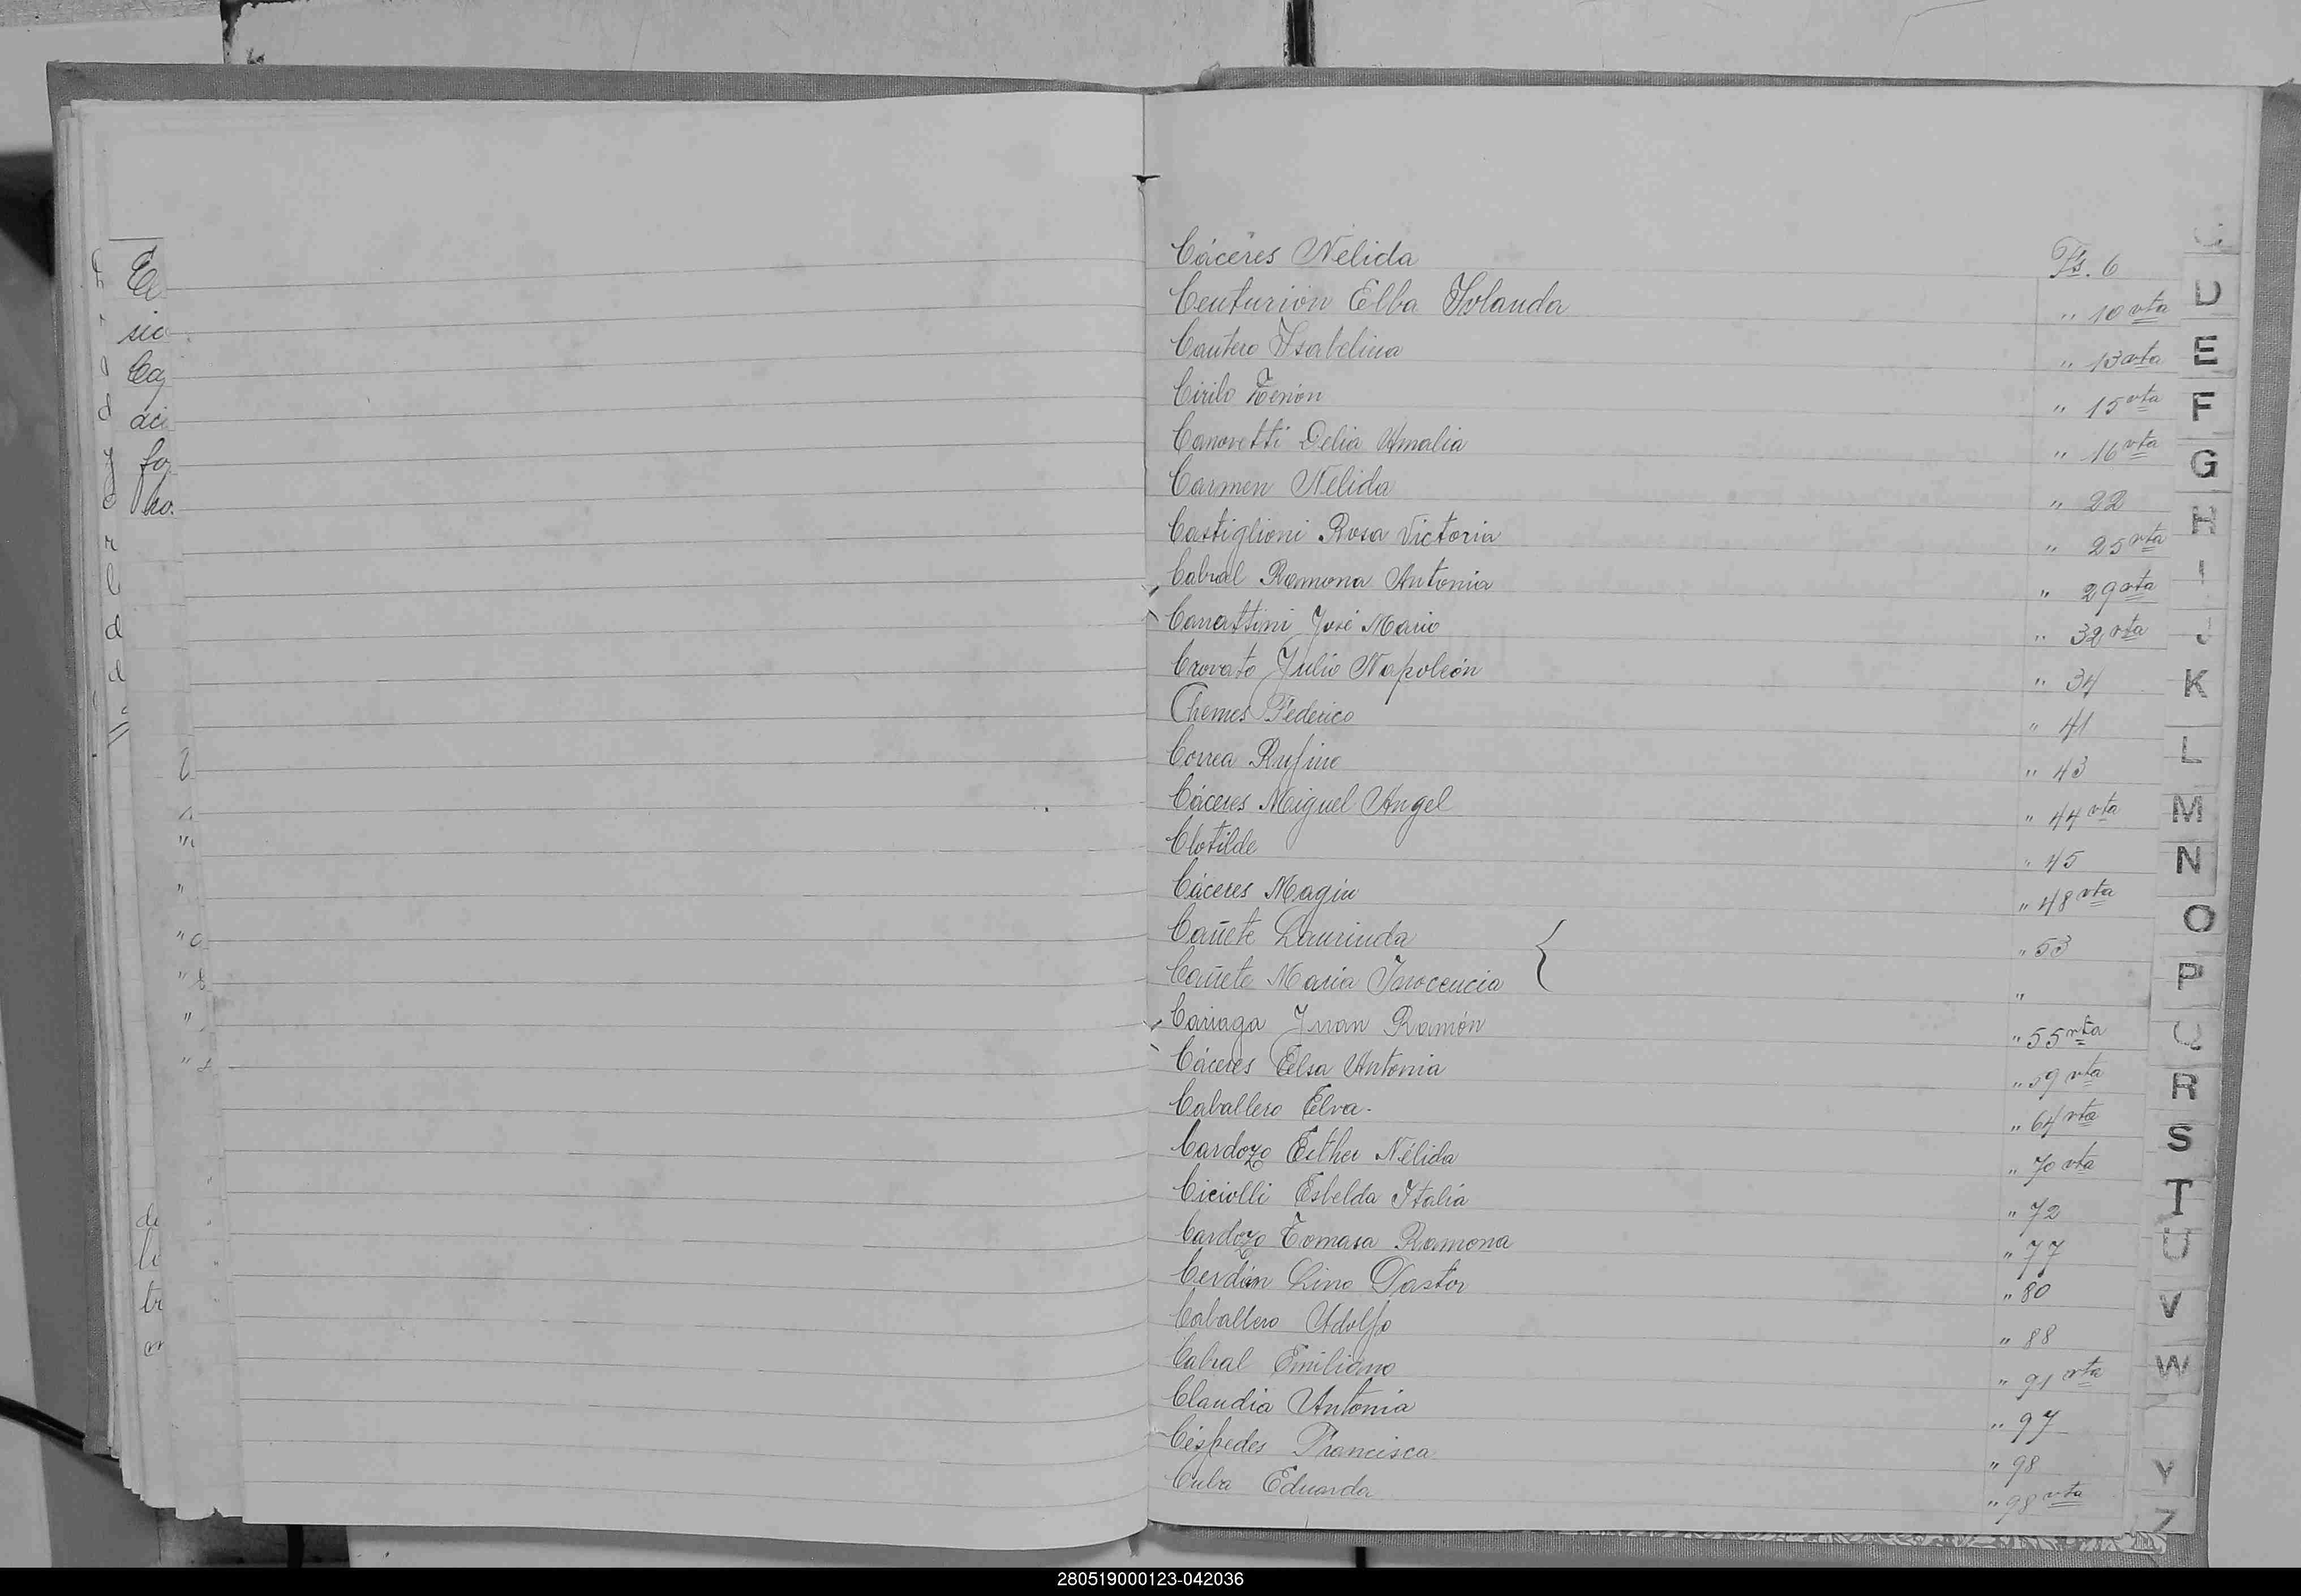 Cáceres Nélida Fs. 6
Centurión Elba Yolanda " 10 vta
Cantero Ysabelina " 13 vta
Cirilo Zenón " 15 vta
Canovetti Delia Amalia " 16 vta
Carmen Nélida " 22
Castiglioni Rosa Victoria " 25 vta
Cabral Ramona Antonia " 29 vta
José Mario " 32 vta
Crovato Julio Napoleón " 34
Chemes Federico " 41
Correa Rufino " 43
Cáceres Miguel Angel " 44 vta
Clotilde " 45
Cáceres Magin " 48 vta
Cañete Laurinda " 53
Cañete Maria Inocencia "
Cariaga Juan Ramón " 55 vta
Cáceres Elsa Antonia " 59 vta
Caballero Elva. " 64 vta
Cardozo Esther Nélida " 70 vta
Ciciolli Esbelda Italia " 72
Cardozo Tomasa Ramona " 77
Cerdán Lino Pastor " 80
Caballero Adolfo " 88
Cabral Emiliano " 91 vta
Claudia Antonia " 97
Céspedes Francisca " 98
Cuba Eduarda " 98 vta
D
E
F
G
H
I
J
K
L
M
N
O
P
Q
R
S
T
U
V
W
Y
Z
280519000123-042036